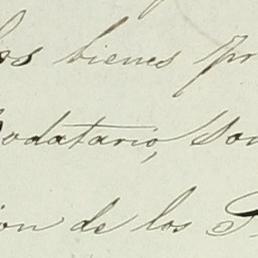 los bienes
odatario, son
ion de los